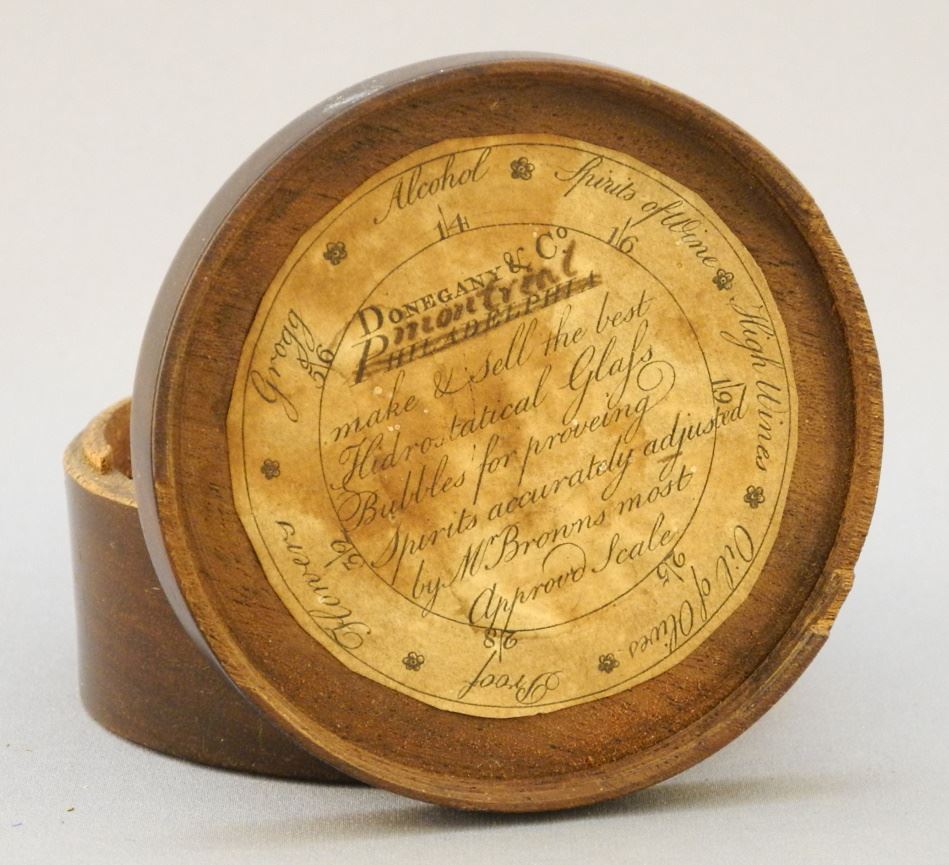 Donegany & Co
montreal
PHILADELPHIA
make & sell the best
Hidrostatical Glaſs
Bubbles for proveing
Spirits accurately adjusted
by Mr Browns most
Approvd Scale
Alcohol
14
Spirits of Wine
16
High Wines
19
Oil of Olives
25
Proof
28
Flowers
32
Grogg
36